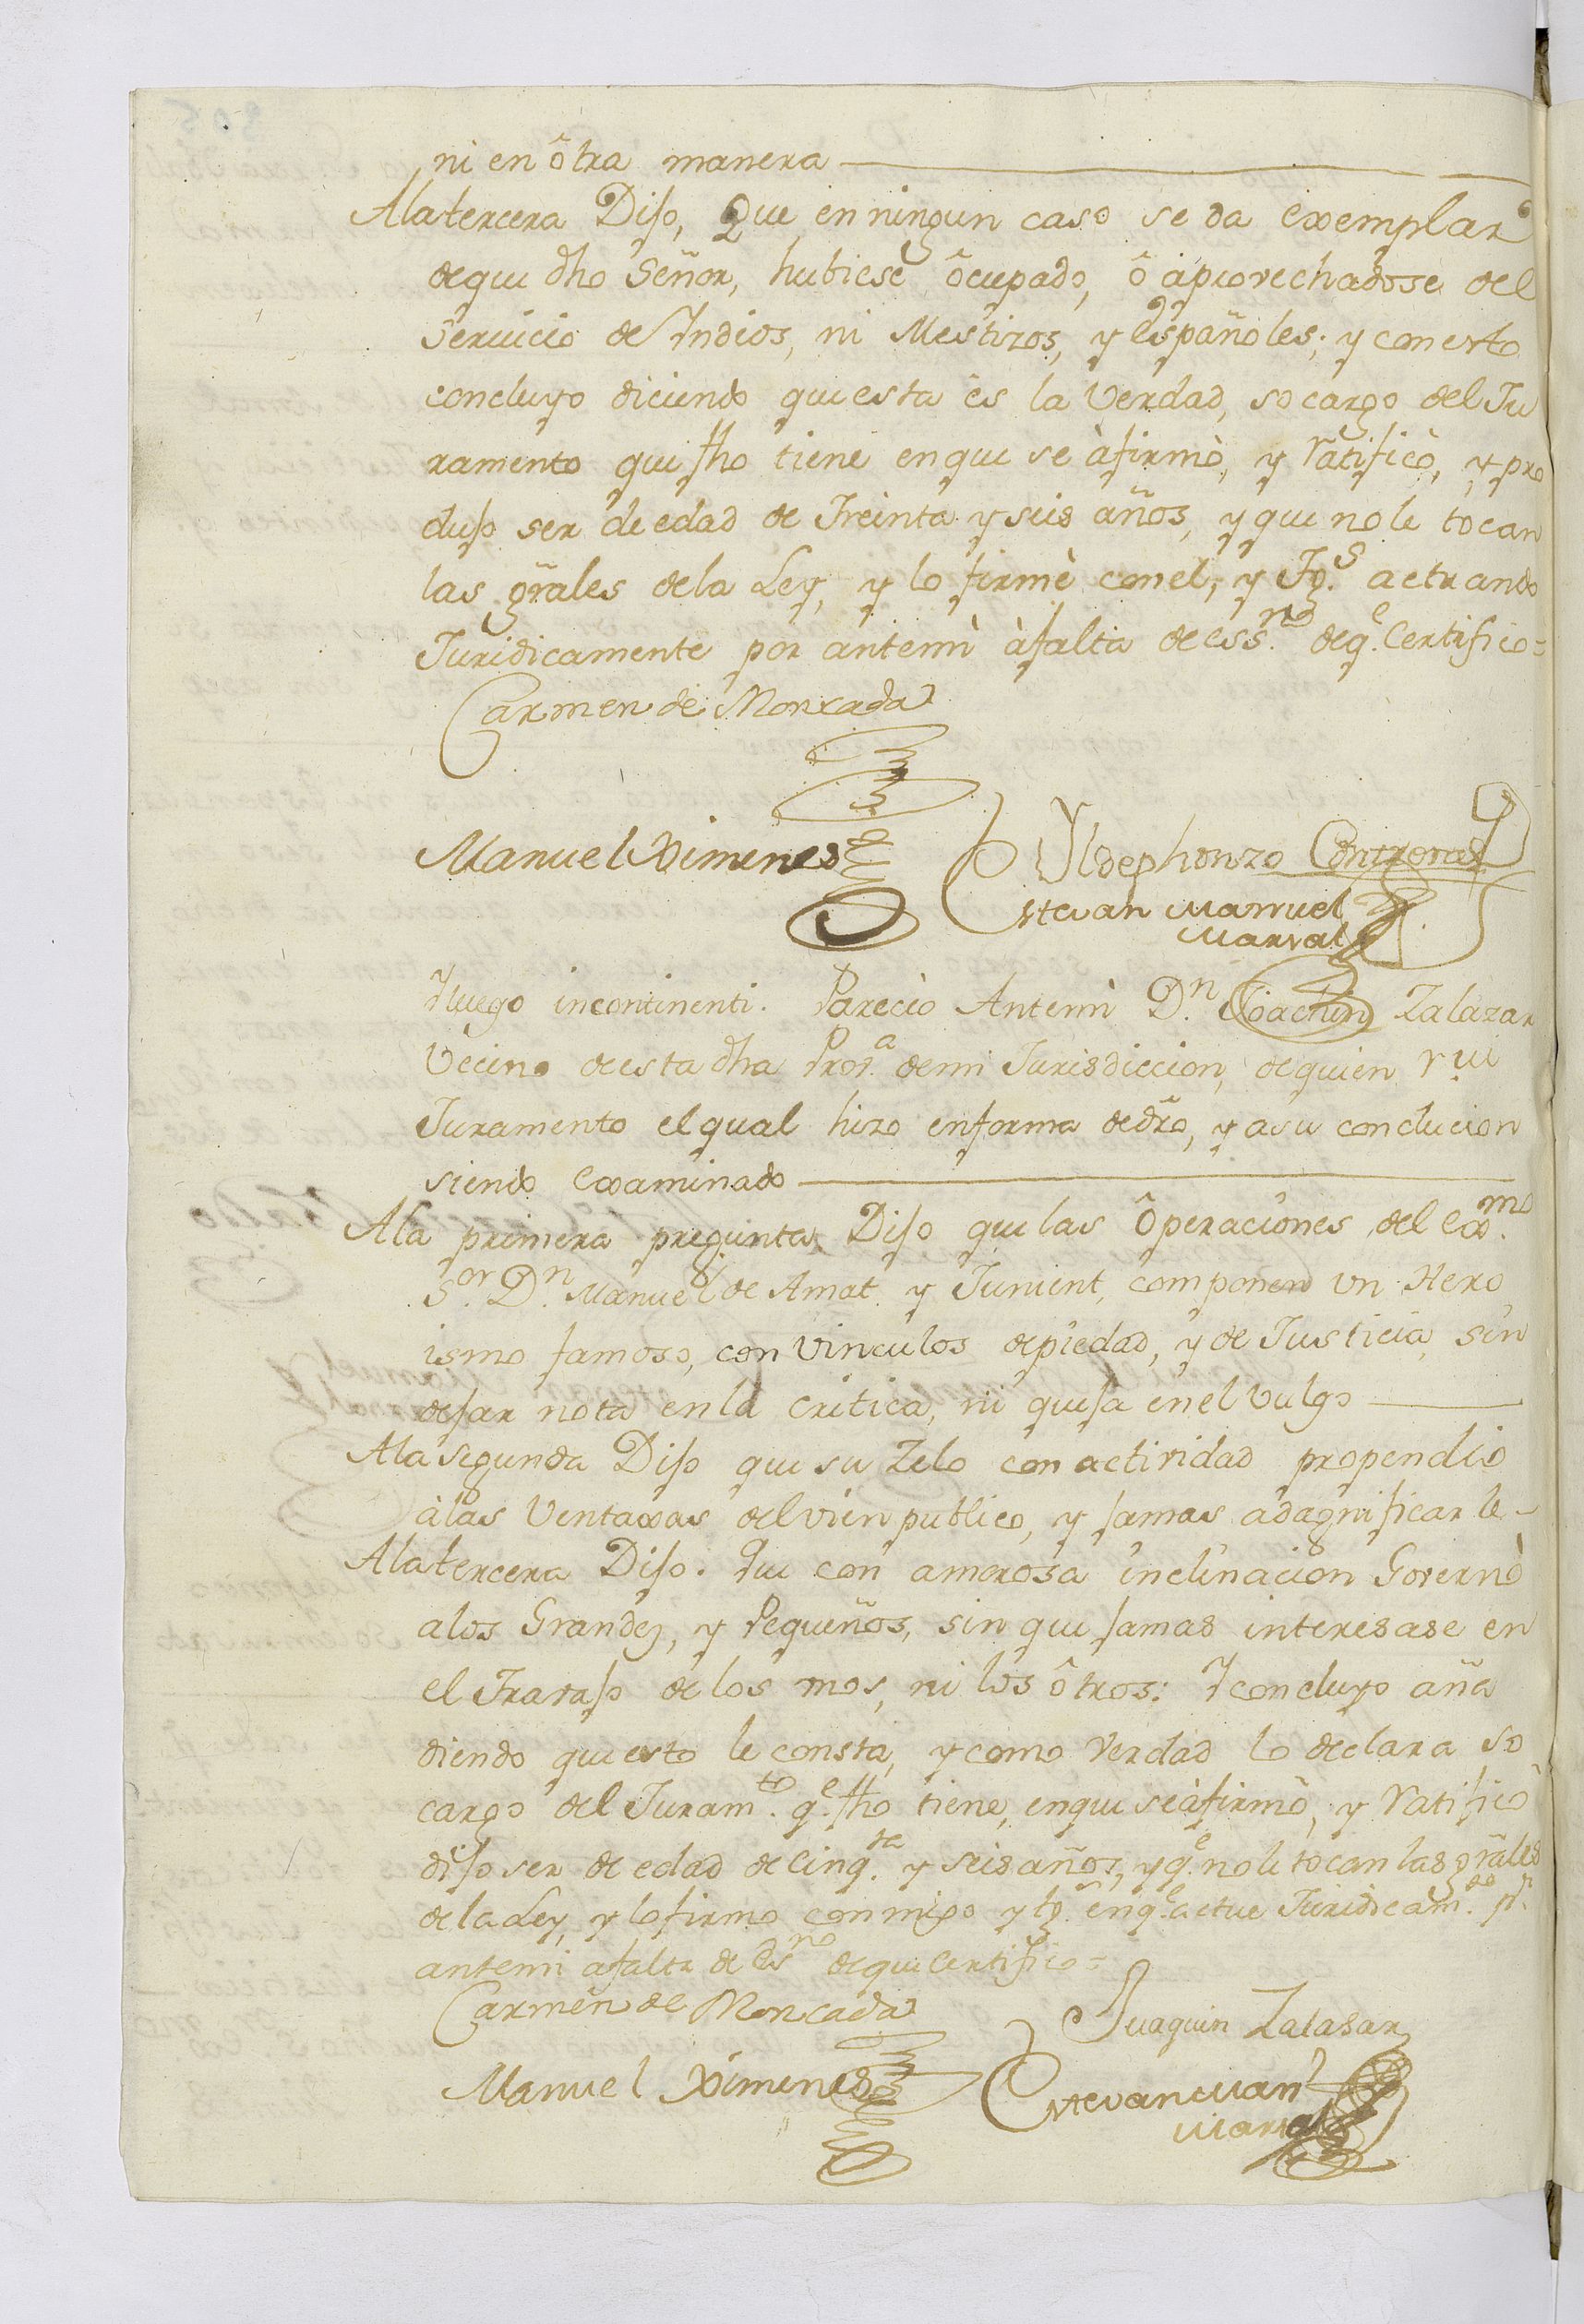 ni en ôtra manera
A la tercera Dijo, Que en ningun caso se da exemplar
de que dho Señor, hubiese ôcupado, ô aprovechadose del
Servicio de Indios, ni Mestizos, y Españoles; y con esto
concluyo diciendo que esta es la Verdad, so cargo del Ju
ramento que fho tiene en que se àfirmò, y ratificò, y pro
dujo ser de edad de Treinta y seis años, y que no le tocan
las grâles de la Ley, y lo firmè con el, y Tg.s actuando
Juridicamente por antemì àfalta de ess.no de q.e Certifico =
Carmen de Moncada
Manuel Ximenes
Yldephonzo Contreras
Estevan Manuel
Marval
Yluego incontinenti. Pareciò Antemì D.n Joachin Zalazar
Vecino de esta dha Prov.a de mi Jurisdiccion, de quien rvi
Juramento el qual hizo en forma de dr̃o, y a su conclucion
siendo Examinado
A la primera pregunta Dijo que las Ôperaciones del Exmo.
S.or D.n Manuel de Amat y Junient, componen vn Hero
ismo famoso, con vinculos de piedad, y de Justicia, sin
dejar nota en la critica, ni queja en el Vulgo
A la segunda Dijo que su Zelo con actividad propendio
à las Ventaxas del vien publico, y jamas a dagnificarle -
A la tercera Dijo. Que con amorosa inclinacion Governò
a los Grandes, y Pequeños, sin que jamas interesase en
el Travajo de los unos, ni los ôtros: Y concluyo aña
diendo que esto le consta, y como Verdad lo declara so
cargo del Juram.to q.e fho tiene, en que se àfirmò, y ratificò
dijo ser de edad de Cinq.ta y seis años, y q.e no le tocan las grâles
de la Ley, y lo firmo conmigo y tg.s en q.e actue Juridicam.te p.r
antemi afalta de Es.no de que Certifico =
Carmen de Moncada
Juaquin Zalasar
Manuel Ximenes
Estevan Man.l
Marval